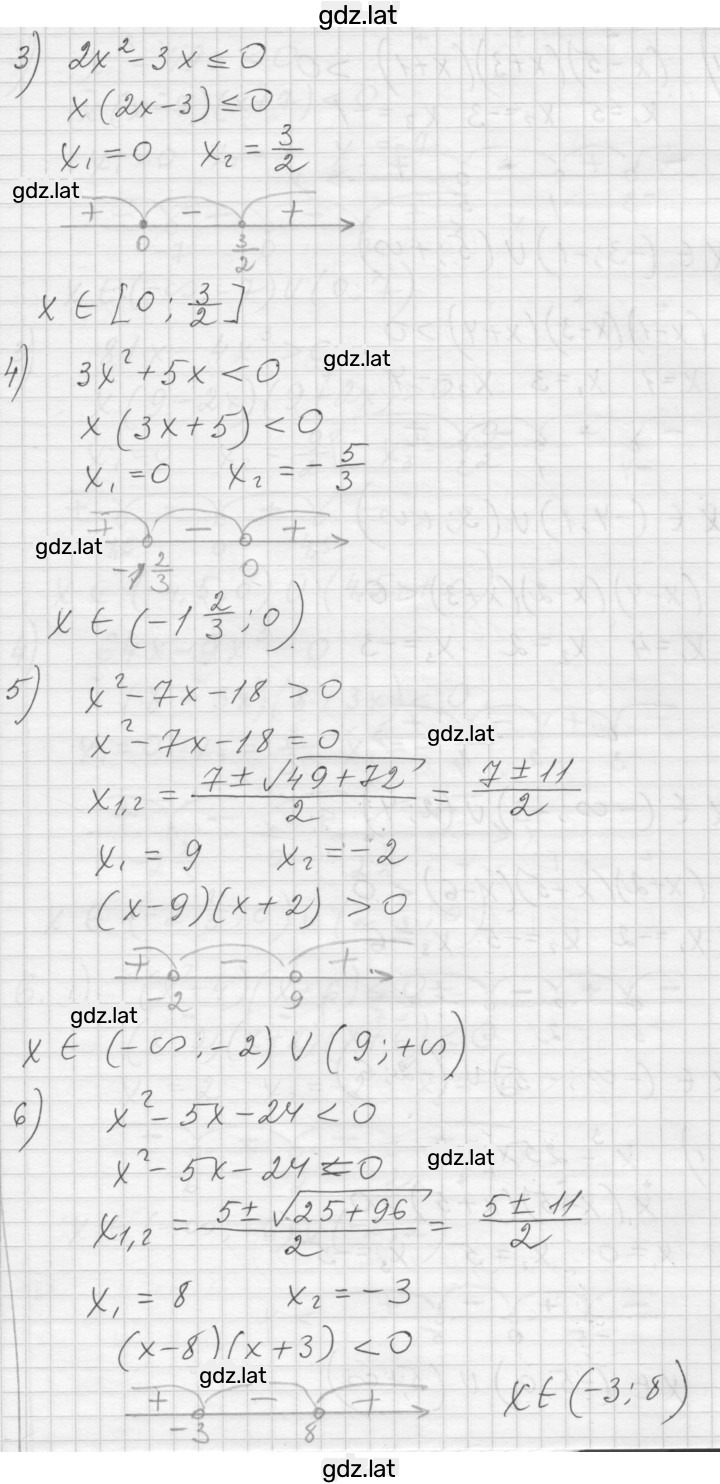 gdz.lat
3) 2x² - 3x ≤ 0
x(2x-3) ≤ 0
x₁ = 0 x₂ = 3/2
gdz.lat
+ - +
0 3/2
x ∈ [0; 3/2]
gdz.lat
4) 3x² + 5x < 0
x(3x+5) < 0
x₁ = 0 x₂ = -5/3
+ - +
gdz.lat
-1 2/3 0
x ∈ (-1 2/3; 0)
5) x² - 7x - 18 > 0
gdz.lat
x² - 7x - 18 = 0
x₁,₂ = (7 ± √(49+72))/2 = (7 ± 11)/2
x₁ = 9 x₂ = -2
(x-9)(x+2) > 0
+ - +
-2 9
gdz.lat
x ∈ (-∞; -2) ∪ (9; +∞)
6) x² - 5x - 24 < 0
gdz.lat
x² - 5x - 24 = 0
x₁,₂ = (5 ± √(25+96))/2 = (5 ± 11)/2
x₁ = 8 x₂ = -3
(x-8)(x+3) < 0
gdz.lat
+ - +
-3 8
x ∈ (-3; 8)
gdz.lat